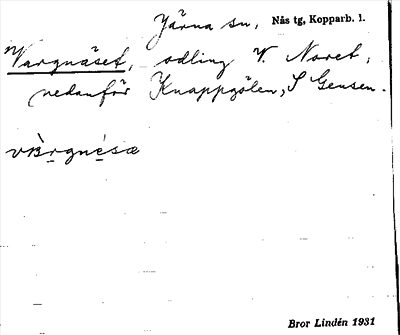 Järna sn, Nås tg, Kopparb. l.
Vargnäset, odling V. Noret,
nedanför Knappgölen, S Gensen.
Bror Lindén 1931